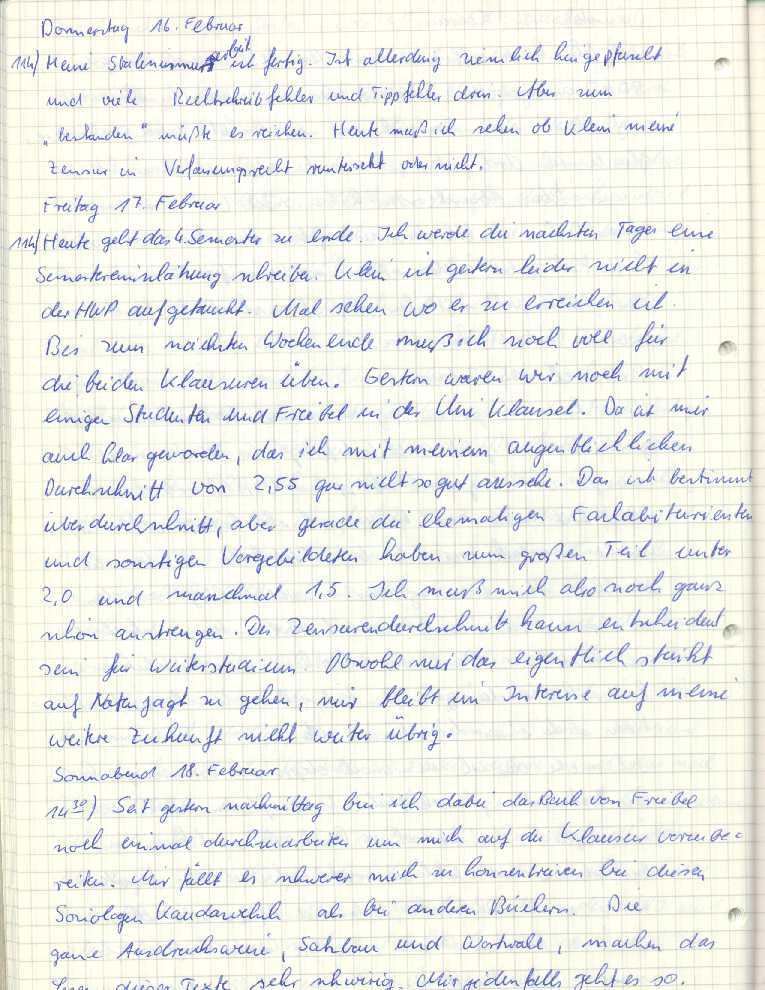 Donnerstag 16. Februar
11h) Meine Stalinismusarbeit ist fertig. Ist allerdings ziemlich hingepfuscht
und viele Rechtschreibfehler und Tippfehler drin. Aber zum
"bestanden" müßte es reichen. Heute muß ich sehen ob Klein meine
Zensur in Verfassungsrecht runtersetzt oder nicht.
Freitag 17. Februar
11h) Heute geht das 4. Semester zu ende. Ich werde die nächsten Tage eine
Semestereinschätzung schreiben. Klein ist gestern leider nicht in
der HWP aufgetaucht. Mal sehen wo er zu erreichen ist.
Bis zum nächsten Wochenende muß ich noch voll für
die beiden Klausuren üben. Gestern waren wir noch mit
einigen Studenten und Friebel in der Uni Klausel. Da ist mir
auch klar geworden, das ich mit meinem augenblicklichen
Durchschnitt von 2,55 gar nicht so gut aussehe. Das ist bestimmt
überdurchschnitt, aber gerade die ehemaligen Fachabiturienten
und sonstigen Vorgebildeten haben zum großen Teil unter
2,0 und manchmal 1,5. Ich muß mich also noch ganz
schön anstrengen. Der Zensurendurchschnitt kann entscheident
sein für Weiterstudium. Obwohl mir das eigentlich stinkt
auf Notenjagt zu gehen, mir bleibt im Interesse auf meine
weitere Zukunft nicht weiter übrig.
Sonnabend 18. Februar
14 30) Seit gestern nachmittag bin ich dabei das Buch von Friebel
noch einmal durchzuarbeiten um mich auf die Klausur vorzube-
reiten. Mir fällt es schwerer mich zu konzentrieren bei diesen
Soziologen Kauderwelsch als bei anderen Büchern. Die
ganze Ausdrucksweise, Satzbau und Wortwahl, machen das
dieser Texte sehr schwirig. Mir jedenfalls geht es so.